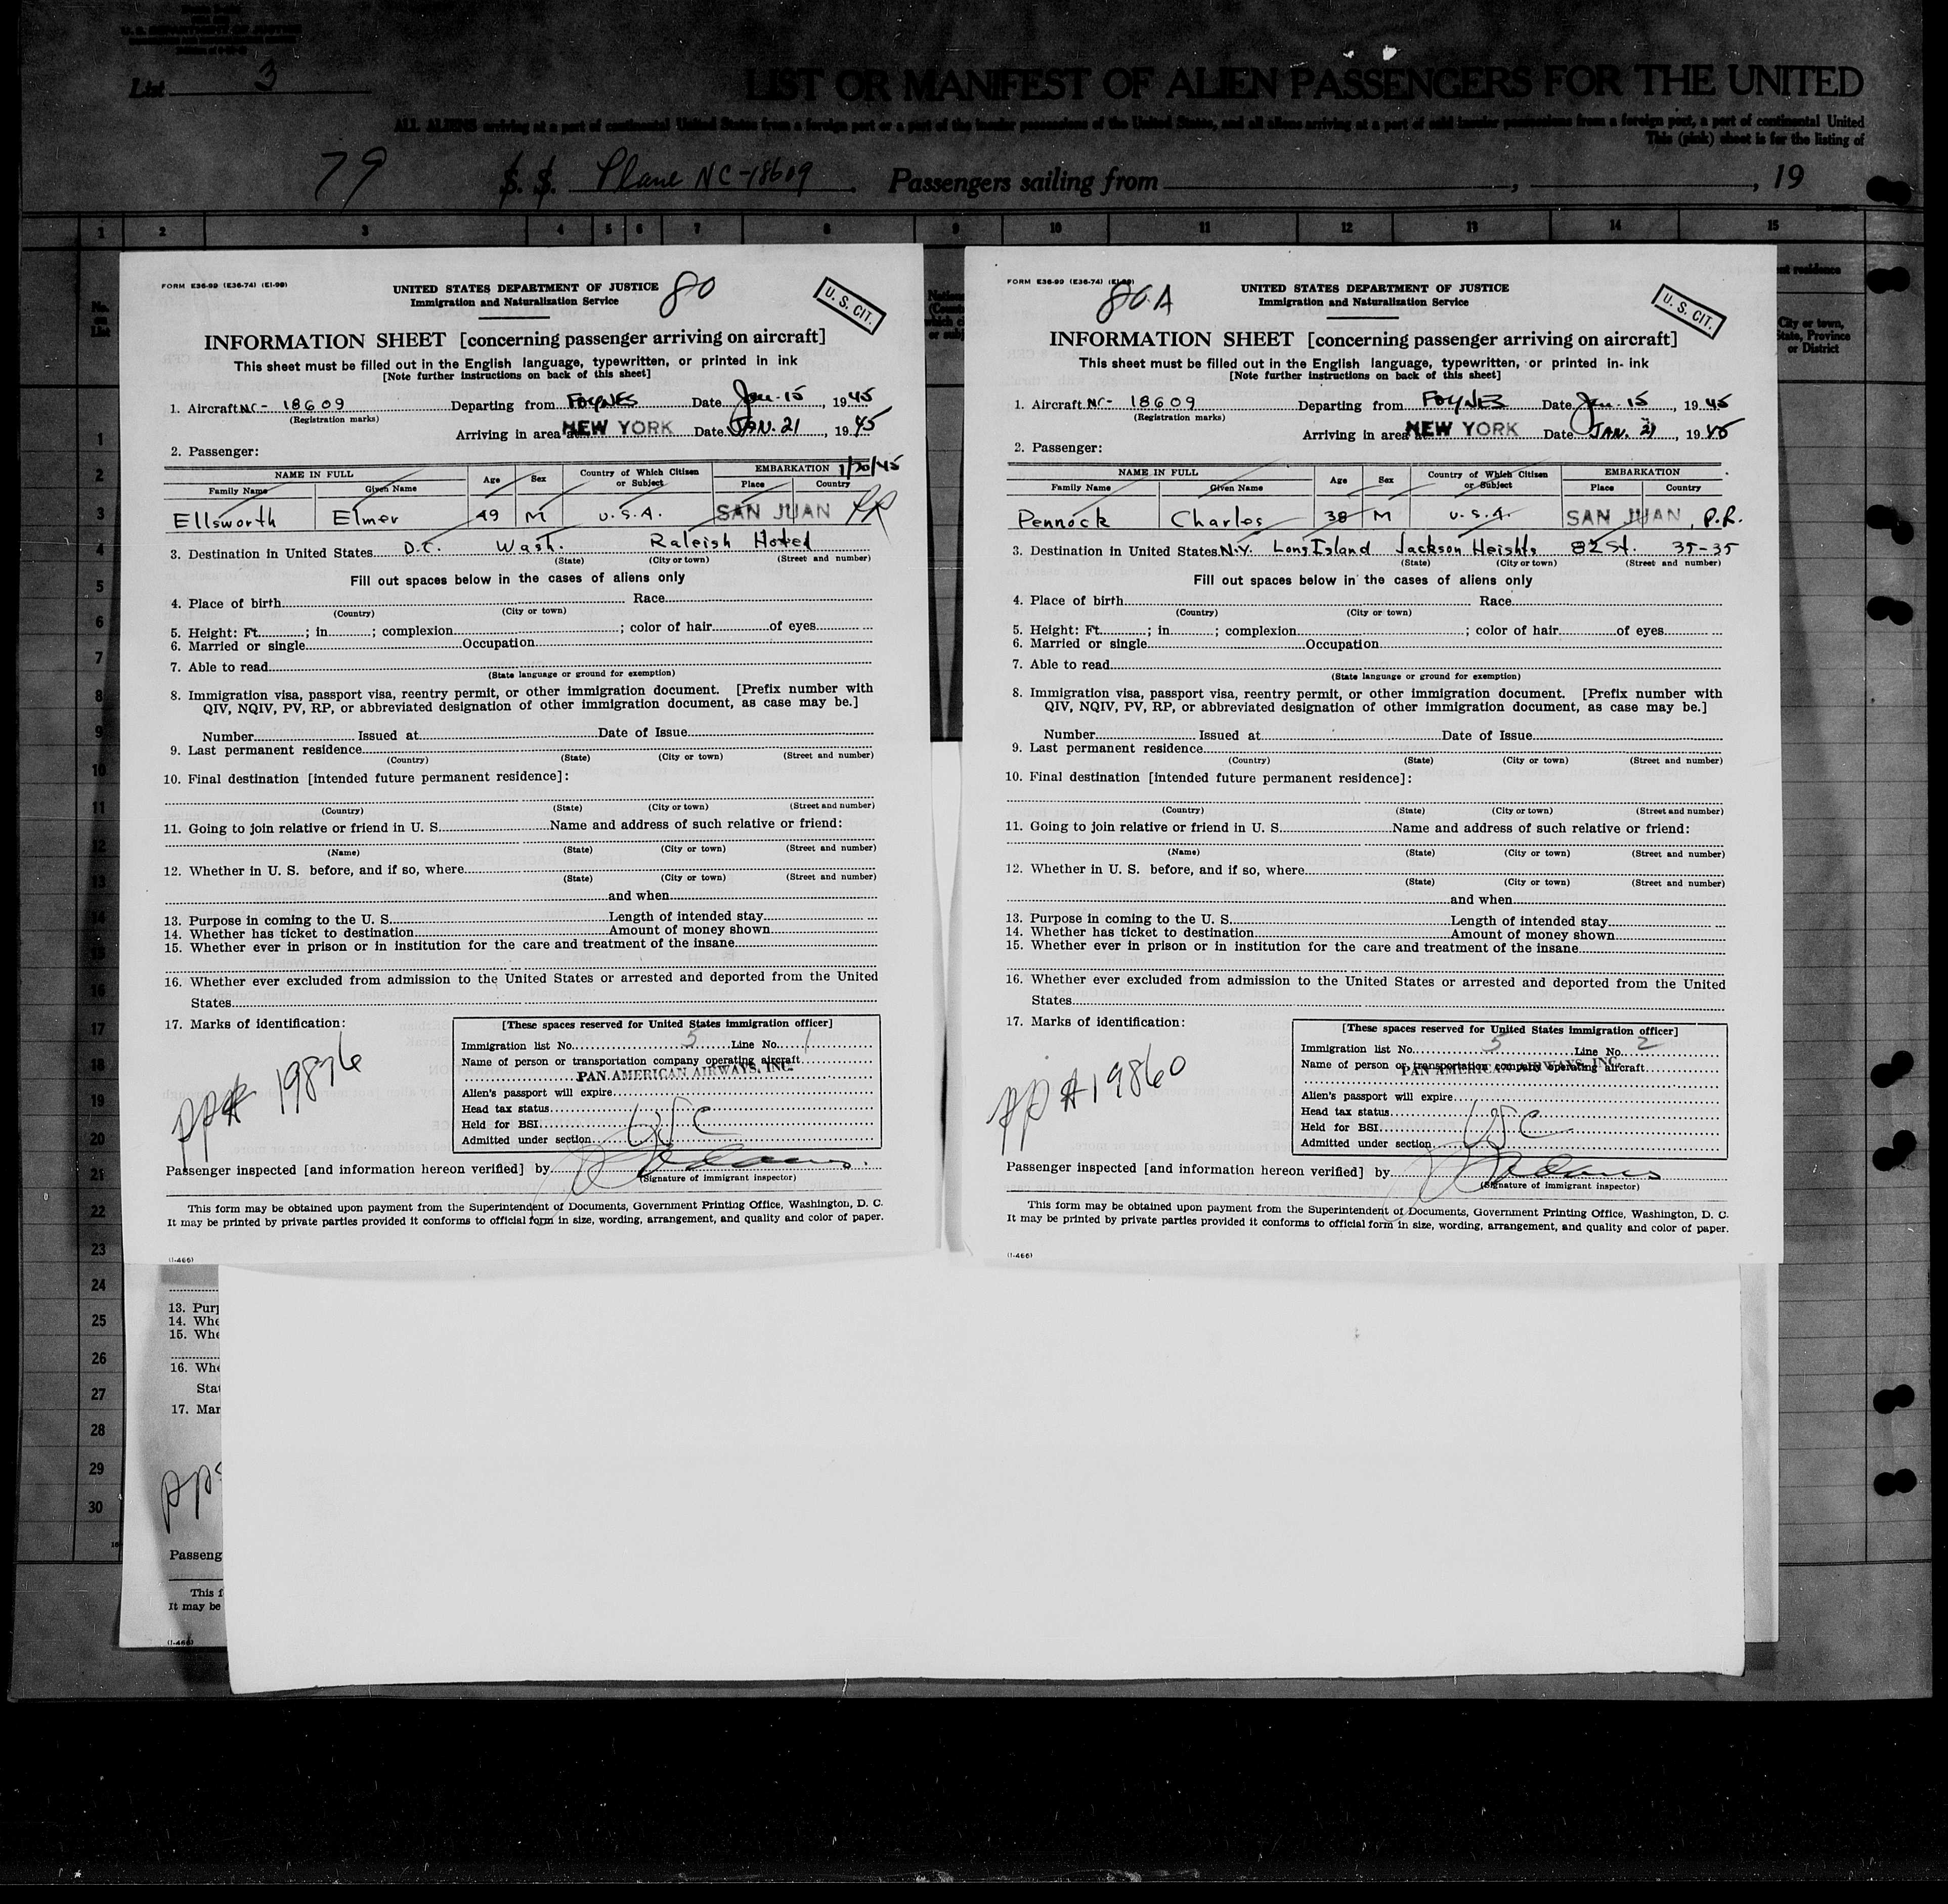 U. S. DEPARTMENT OF JUSTICE
List 3
LIST OR MANIFEST OF ALIEN PASSENGERS FOR THE UNITED
ALL ALIENS arriving at a port of continental United States from a foreign port or a port of the insular possessions of the United States, and all aliens arriving at a port of said insular possessions from a foreign port, a port of continental United
This (pink) sheet is for the listing of
79 S. S. Plane NC-18609. Passengers sailing from , , 19
1 2 3 4 5 6 7 8 9 10 11 12 13 14 15
FORM E36-99 (E36-74) (EI-99)
UNITED STATES DEPARTMENT OF JUSTICE 80
Immigration and Naturalization Service
U. S. CIT.
INFORMATION SHEET [concerning passenger arriving on aircraft]
This sheet must be filled out in the English language, typewritten, or printed in ink
[Note further instructions on back of this sheet]
1. Aircraft NC- 18609 Departing from FOYNES Date Jan. 15, 1945
(Registration marks)
Arriving in area at NEW YORK Date JAN. 21, 1945
2. Passenger:
NAME IN FULL Age Sex Country of Which Citizen or Subject EMBARKATION 1/20/45
Family Name Given Name Place Country
Ellsworth Elmer 49 M U.S.A. SAN JUAN PR
3. Destination in United States D.C. Wash. Raleigh Hotel
(State) (City or town) (Street and number)
Fill out spaces below in the cases of aliens only
4. Place of birth Race
(Country) (City or town)
5. Height: Ft. ; in ; complexion ; color of hair of eyes
6. Married or single Occupation
7. Able to read
(State language or ground for exemption)
8. Immigration visa, passport visa, reentry permit, or other immigration document. [Prefix number with
QIV, NQIV, PV, RP, or abbreviated designation of other immigration document, as case may be.]
Number Issued at Date of Issue
9. Last permanent residence
(Country) (State) (City or town) (Street and number)
10. Final destination [intended future permanent residence]:
(Country) (State) (City or town) (Street and number)
11. Going to join relative or friend in U. S. Name and address of such relative or friend:
(Name) (State) (City or town) (Street and number)
12. Whether in U. S. before, and if so, where
(State) (City or town) (Street and number)
and when
13. Purpose in coming to the U. S. Length of intended stay
14. Whether has ticket to destination Amount of money shown
15. Whether ever in prison or in institution for the care and treatment of the insane
16. Whether ever excluded from admission to the United States or arrested and deported from the United
States
17. Marks of identification:
PP# 19876
[These spaces reserved for United States immigration officer]
Immigration list No. 5 Line No. 1
Name of person or transportation company operating aircraft
PAN AMERICAN AIRWAYS, INC.
Alien's passport will expire
Head tax status
Held for BSI
Admitted under section USC
Passenger inspected [and information hereon verified] by
(Signature of immigrant inspector)
This form may be obtained upon payment from the Superintendent of Documents, Government Printing Office, Washington, D. C.
It may be printed by private parties provided it conforms to official form in size, wording, arrangement, and quality and color of paper.
(I-466)
FORM E36-99 (E36-74) (EI-99)
80A
UNITED STATES DEPARTMENT OF JUSTICE
Immigration and Naturalization Service
U. S. CIT.
INFORMATION SHEET [concerning passenger arriving on aircraft]
This sheet must be filled out in the English language, typewritten, or printed in ink
[Note further instructions on back of this sheet]
1. Aircraft NC- 18609 Departing from FOYNES Date Jan. 15, 1945
(Registration marks)
Arriving in area at NEW YORK Date JAN. 21, 1945
2. Passenger:
NAME IN FULL Age Sex Country of Which Citizen or Subject EMBARKATION
Family Name Given Name Place Country
Pennock Charles 38 M U.S.A. SAN JUAN, P.R.
3. Destination in United States N.Y. Long Island Jackson Heights 82 St. 35-35
(State) (City or town) (Street and number)
Fill out spaces below in the cases of aliens only
4. Place of birth Race
(Country) (City or town)
5. Height: Ft. ; in ; complexion ; color of hair of eyes
6. Married or single Occupation
7. Able to read
(State language or ground for exemption)
8. Immigration visa, passport visa, reentry permit, or other immigration document. [Prefix number with
QIV, NQIV, PV, RP, or abbreviated designation of other immigration document, as case may be.]
Number Issued at Date of Issue
9. Last permanent residence
(Country) (State) (City or town) (Street and number)
10. Final destination [intended future permanent residence]:
(Country) (State) (City or town) (Street and number)
11. Going to join relative or friend in U. S. Name and address of such relative or friend:
(Name) (State) (City or town) (Street and number)
12. Whether in U. S. before, and if so, where
(State) (City or town) (Street and number)
and when
13. Purpose in coming to the U. S. Length of intended stay
14. Whether has ticket to destination Amount of money shown
15. Whether ever in prison or in institution for the care and treatment of the insane
16. Whether ever excluded from admission to the United States or arrested and deported from the United
States
17. Marks of identification:
PP #19860
[These spaces reserved for United States immigration officer]
Immigration list No. 5 Line No. 2
Name of person or transportation company operating aircraft
PAN AMERICAN AIRWAYS, INC.
Alien's passport will expire
Head tax status
Held for BSI
Admitted under section USC
Passenger inspected [and information hereon verified] by
(Signature of immigrant inspector)
This form may be obtained upon payment from the Superintendent of Documents, Government Printing Office, Washington, D. C.
It may be printed by private parties provided it conforms to official form in size, wording, arrangement, and quality and color of paper.
(I-466)
City or town,
State, Province
or District
No.
on
List
1
2
3
4
5
6
7
8
9
10
11
12
13
14
15
16
17
18
19
20
21
22
23
24
25
26
27
28
29
30
13. Purp
14. Whe
15. Whe
16. Whe
Stat
17. Mar
PP
Passeng
This f
It may be
(I-466)